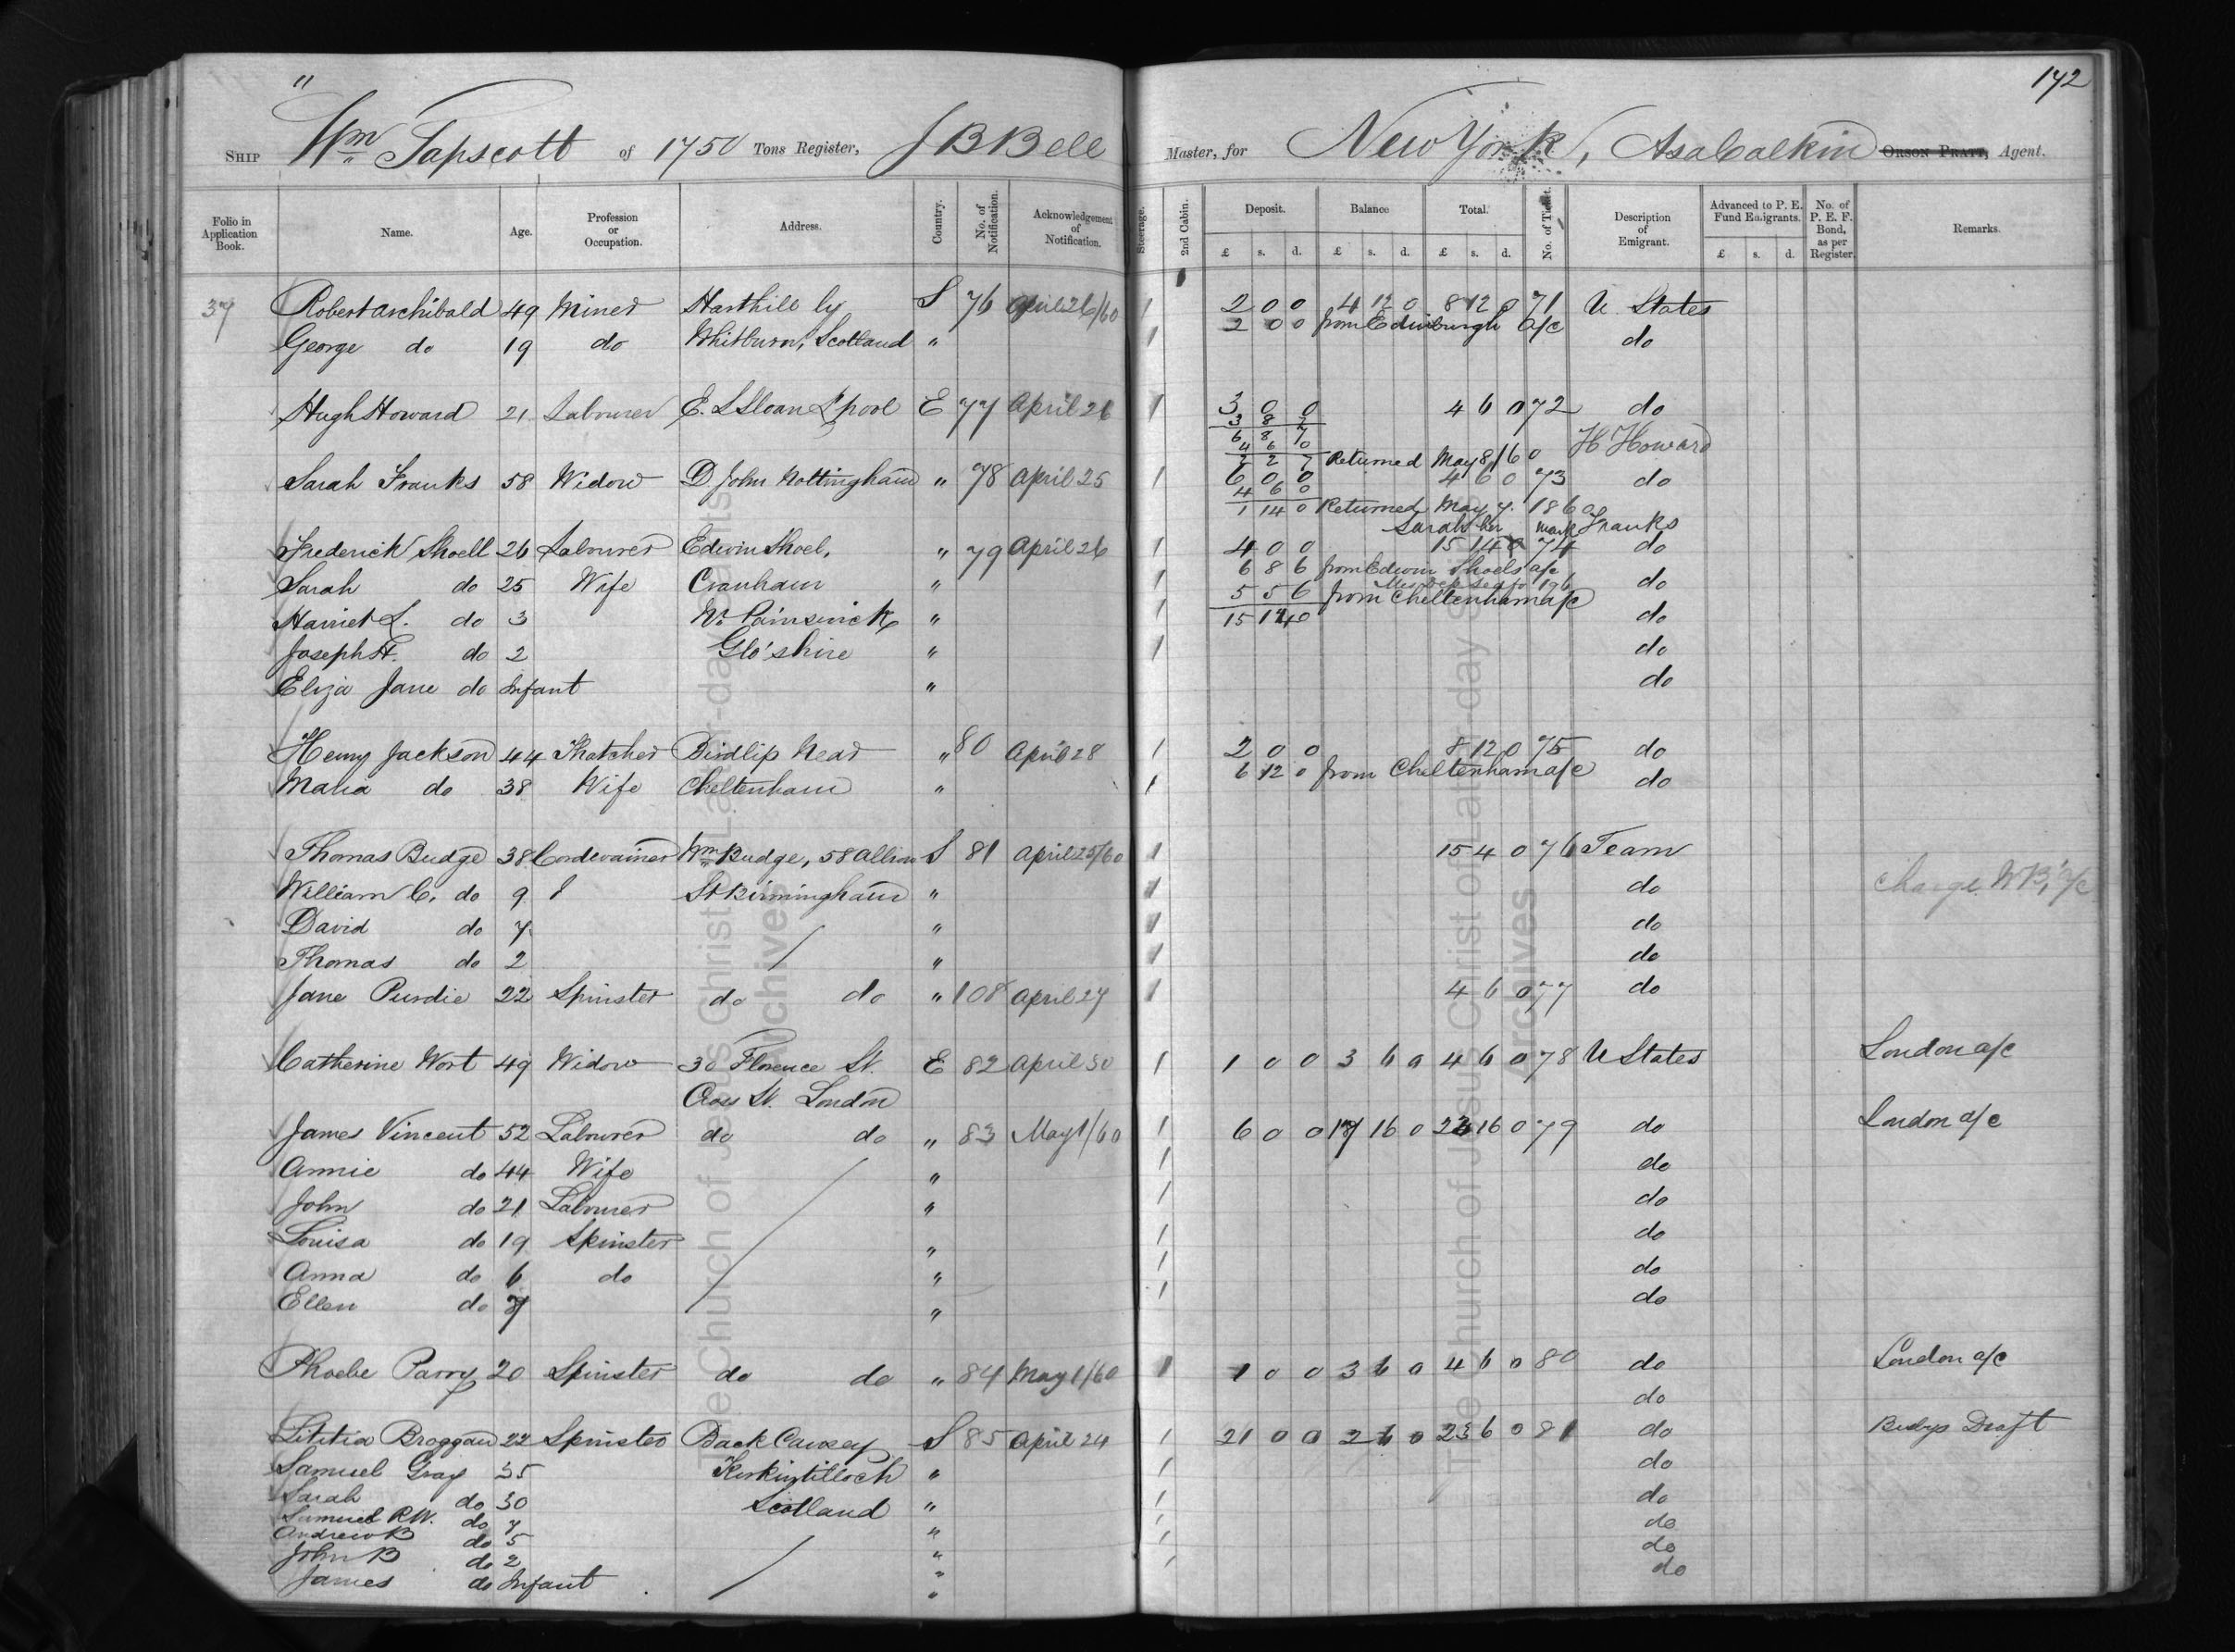 172
Ship "Wm Tapscott of 1750 Tons Register, J B Bell Master, for New York, Asa Calkin Orson Pratt, Agent.
Folio in Application Book. Name. Age. Profession or Occupation. Address. Country. No. of Notification. Acknowledgement of Notification. Steerage. 2nd Cabin. Deposit. £ s. d. Balance £ s. d. Total. £ s. d. No. of Ticket. Description of Emigrant. Advanced to P. E. Fund Emigrants. £ s. d. No. of P. E. F. Bond, as per Register. Remarks.
37 Robert Archibald 49 Miner Harthill by S 76 April 26/60 1 2 0 0 4 12 0 8 12 0 71 U. States
2 0 0 from Edinburgh a/c
George do 19 do Whitburn, Scotland " 1 do
Hugh Howard 21 Labourer E. L Sloan L'pool E 77 April 26 1 3 0 0 4 6 0 72 do
3 8 7
6 8 7 H Howard
4 6 0
2 2 7 Returned May 8/60
Sarah Franks 58 Widow D John Nottingham " 78 April 25 1 6 0 0 4 6 0 73 do
4 6 0
1 14 0 Returned May 7. 1860
Sarah her mark Franks
Frederick Shoell 26 Labourer Edwin Shoel, " 79 April 26 1 4 0 0 15 14 0 74 do
6 8 6 from Edwin Shoels a/c
Sarah do 25 Wife Cranham " 1 do
5 5 6 from Cheltenham a/c
Harriet L. do 3 Nr. Painswick " 1 15 14 0 do
Joseph H. do 2 Glo'shire " 1 do
Eliza Jane do Infant " do
Henry Jackson 44 Thatcher Birdlip Near " 80 April 28 1 2 0 0 8 12 0 75 do
6 12 0 from Cheltenham a/c
Maria do 38 Wife Cheltenham " 1 do
Thomas Budge 38 Cordwainer Wm Budge, 58 Allison S 81 April 25/60 1 15 4 0 76 Team
William C. do 9 St Birmingham " 1 do Charge W B's a/c
David do 7 " 1 do
Thomas do 2 " 1 do
Jane Purdie 22 Spinster do do " 108 April 27 1 4 6 0 77 do
Catherine Wort 49 Widow 30 Florence St. E 82 April 30 1 1 0 0 3 6 0 4 6 0 78 U States London a/c
Cross St. London
James Vincent 52 Labourer do do " 83 May 1/60 1 6 0 0 17 16 0 23 16 0 79 do London a/c
Annie do 44 Wife " 1 do
John do 21 Labourer " 1 do
Louisa do 19 Spinster " 1 do
Anna do 6 do " 1 do
Ellen do 7 " 1 do
Phoebe Parry 20 Spinster do do " 84 May 1/60 1 1 0 0 3 6 0 4 6 0 80 do London a/c
do
Lititia Broggan 22 Spinster Back Causey S 85 April 24 1 21 0 0 2 6 0 23 6 0 81 do Draft
Samuel Gray 35 Kirkintilloch " 1 do
Sarah do 30 Scotland " 1 do
Samuel R.W. do 7 " 1 do
Andrew B do 5 " 1 do
John B do 2 " 1 do
James do Infant "
The Church of Jesus Christ of Latter-day Saints
Archives
The Church of Jesus Christ of Latter-day Saints
Archives